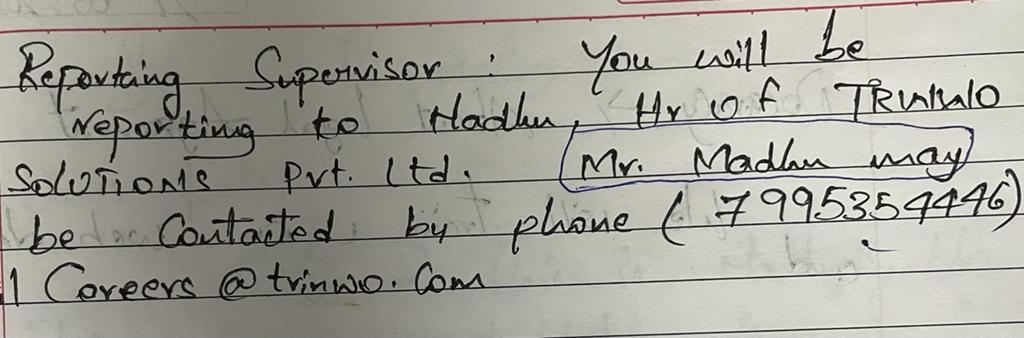 Reporting Supervisor : You will be
reporting to Madhu, Hr of TRINWO
SOLUTIONS Pvt. Ltd. Mr. Madhu may
be Contacted by phone ( 7995354446)
1 Careers @ trinwo. Com